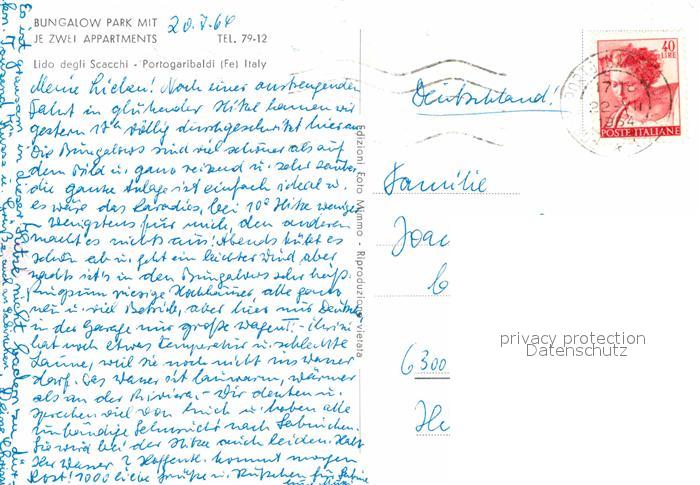 BUNGALOW PARK MIT 20.7.64
JE ZWEI APPARTMENTS TEL. 79-12
Lido degli Scacchi - Portogaribaldi (Fe) Italy
Meine Lieben! Noch einer anstrengenden
Fahrt in glühender Hitze kamen wir
gestern völlig durchgeschwitzt hier an.
Die Bungalows sind viel schöner als auf
dem Bild u. ganz reizend u. sehr sauber
die ganze Anlage ist einfach ideal u.
es wäre das Paradies, bei 10° Hitze weniger
wenigstens für mich, den anderen
macht es nichts aus! Abends kühlt es
schön ab u. geht ein leichter Wind aber
nachts ist's in den Bungalows sehr heiß.
Ringsum riesige Hochhäuser alle ganz
neu u. viel Betrieb, aber hier nur Deutsche
in der Garage nur große Wagen!
hat noch etwas Temperatur u. schlechte
Laune, weil sie noch nicht ins Wasser
darf. Das Wasser ist lauwarm, wärmer
als an der Riviera. - Wir denken u.
sprechen viel von Euch u. haben alle
unbändige Sehnsucht nach
Sie wird bei der Hitze auch leiden. Habt
Ihr Wasser? Hoffentl. kommt morgen
Post! 1000 liebe Grüße u. Küßchen für
Es ist grausam in dieser Hitze nicht baden zu dürfen.
Edizioni Foto Mimmo - Riproduzione vietata
Deutschland!
40
LIRE
POSTE ITALIANE
Familie
Joac
6300
privacy protection
Datenschutz